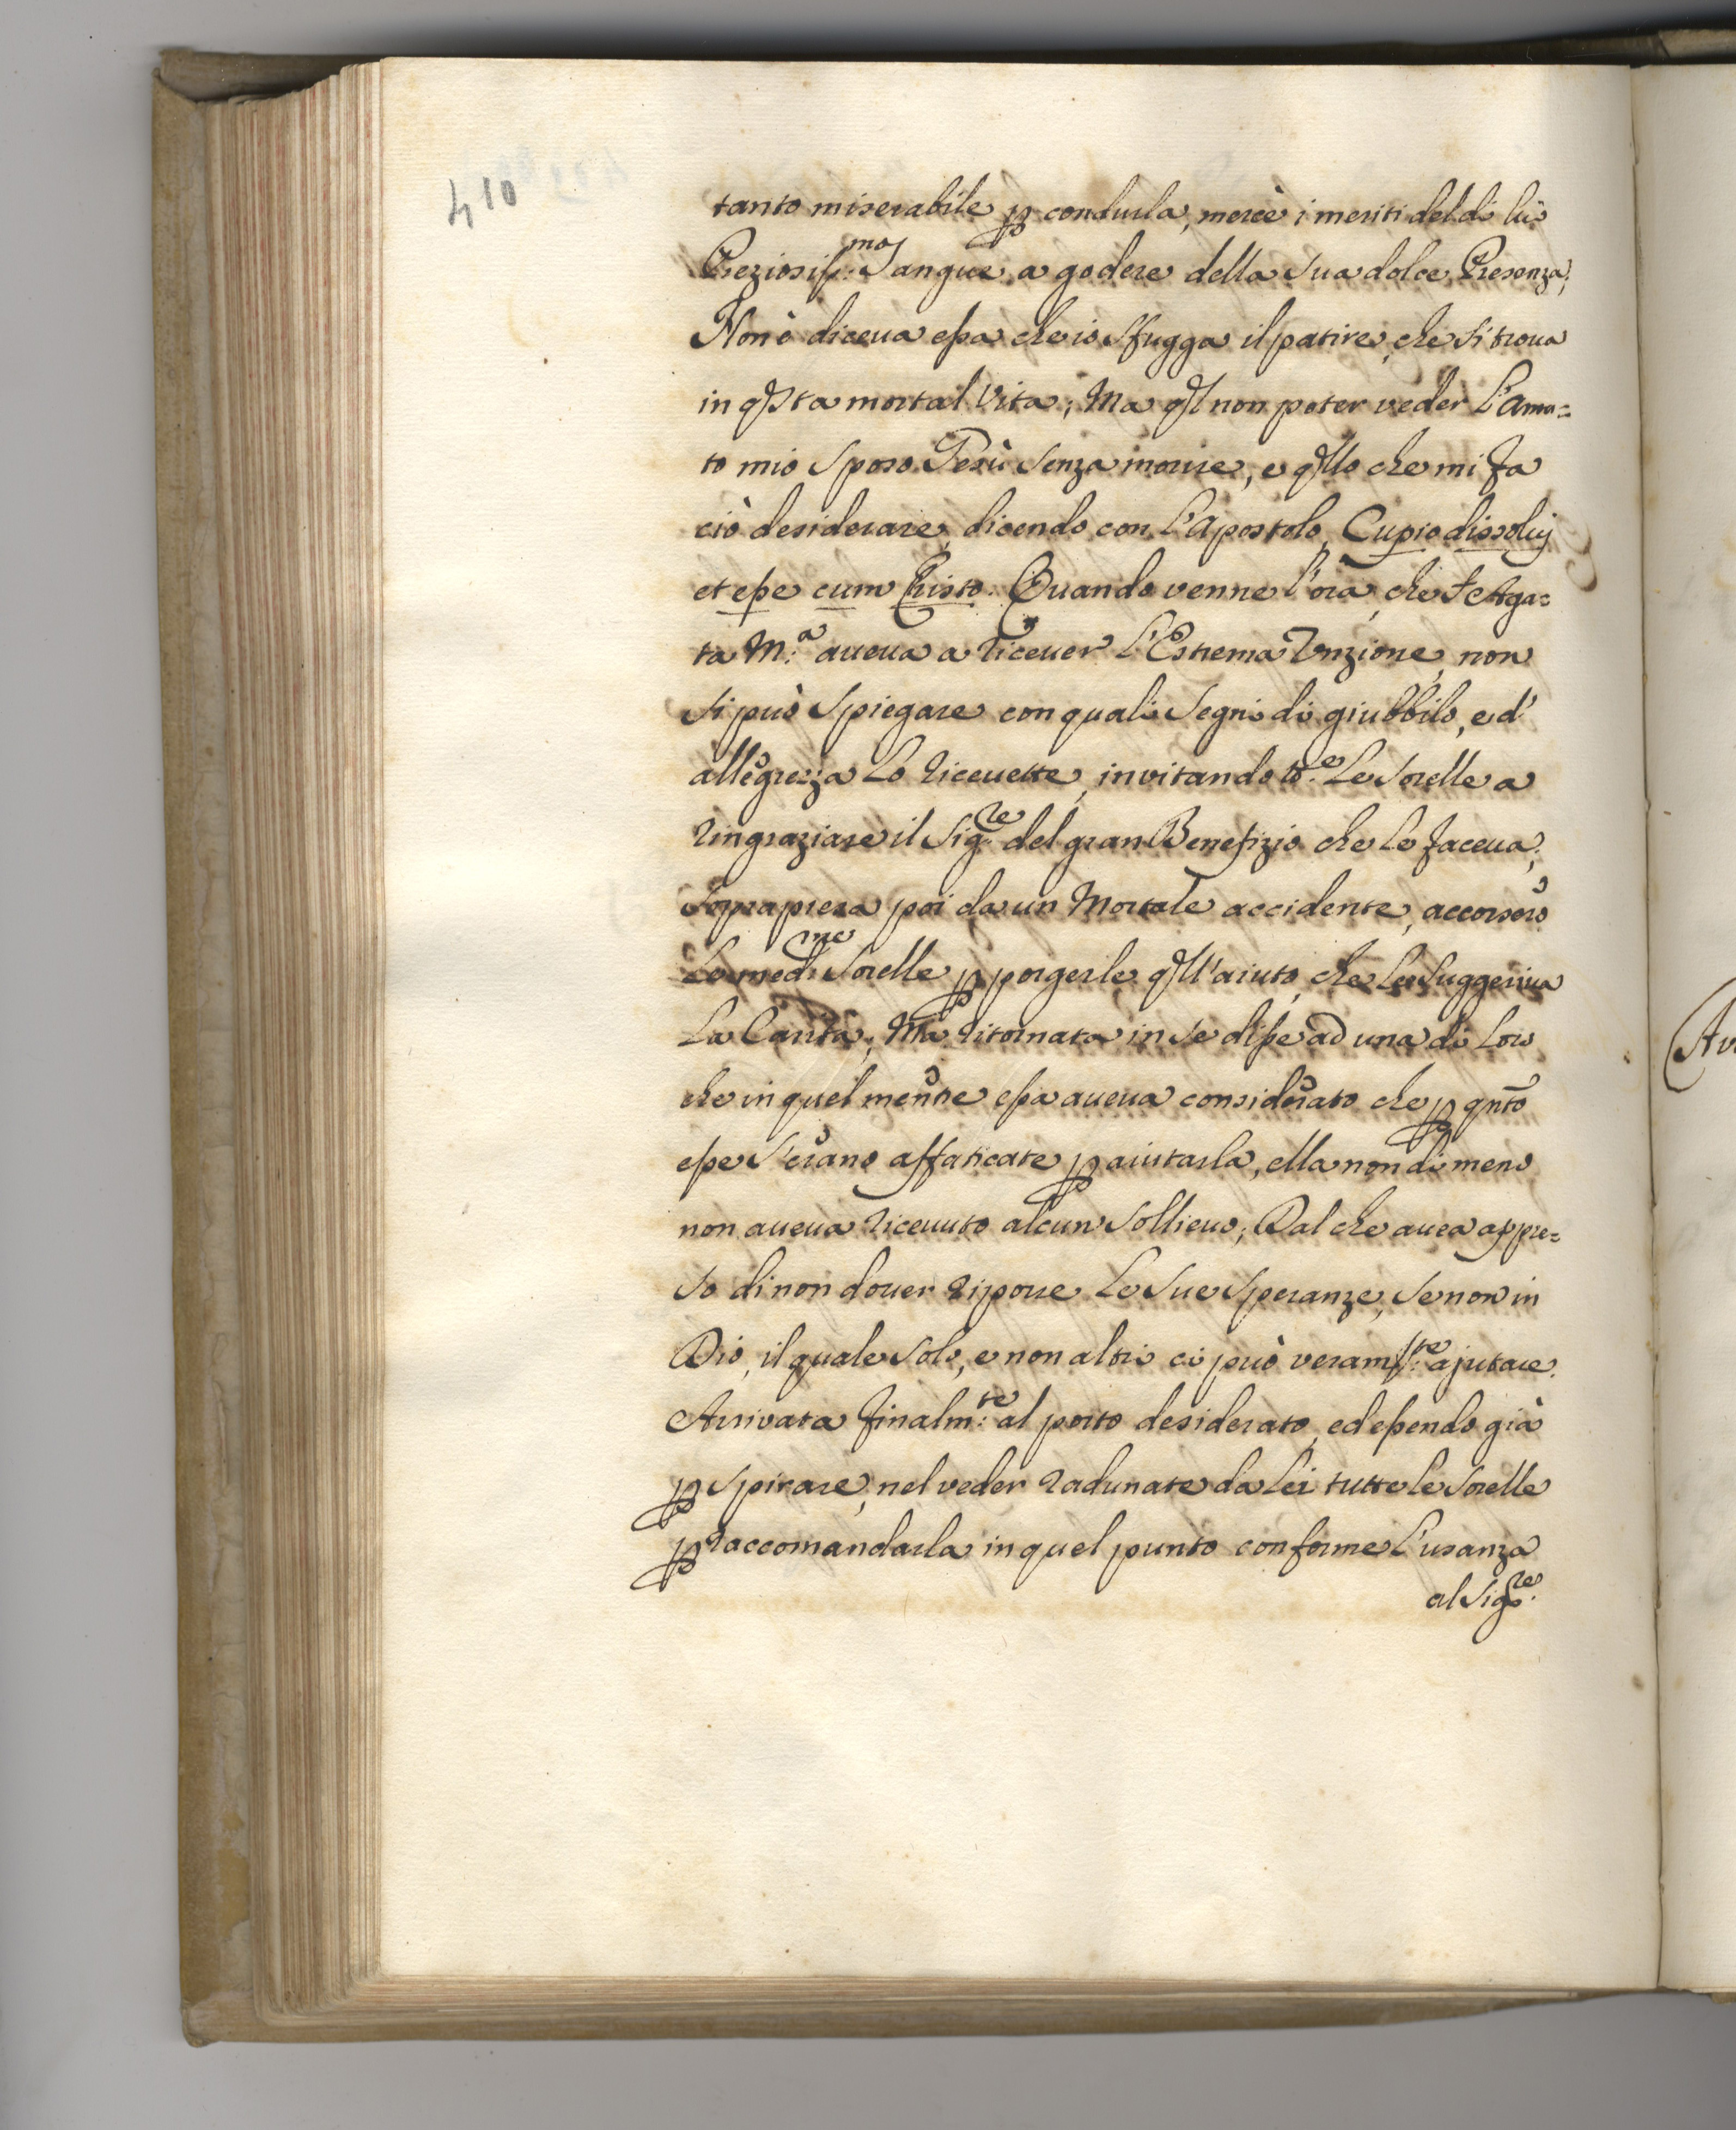 410
tanto miserabile p condurla, mercè i meriti del di lui
Preziosiss:mo Sangue, a godere della sua dolce Presenza;
Non è diceua essa che io sfugga il patire, che si troua
in qsta mortal Vita; Ma ql non poter veder l'Ama=
to mio Sposo Gesù senza morire, e qllo che mi fa
ciò desiderare, dicendo con l'Apostolo, Cupio dissoluj
et esse cum Christo. Quando venne l'ora, che S. Aga=
ta M.a aueua a riceuer l'Estrema Vnzione, non
si può spiegare con quali segni di giubbilo, e d'
allegrezza lo riceuette, invitando to:e le sorelle a
ringraziare il Sig:re del gran Benefizio che le faceua;
Soprapresa poi da un Mortale accidente, accorsero
Le med:me Sorelle p porgerle qll'aiuto, che le suggeriua
La Carità; Ma ritornata in se disse ad una di loro
che in quel mentre essa aueua considerato che p qnto
esse s'erano affaticate p aiutarla, ella non di meno
non aueua riceuuto alcun sollieuo; Dal che auea appre=
so di non douer riporre le sue speranze, se non in
Dio, il quale solo, e non altri ci può veram:te ajutare.
Arrivata finalm:te al porto desiderato, ed essendo già
p spirare, nel veder radunate da lei tutte le sorelle
p raccomandarla in quel punto conforme l'usanza
al Sig:re